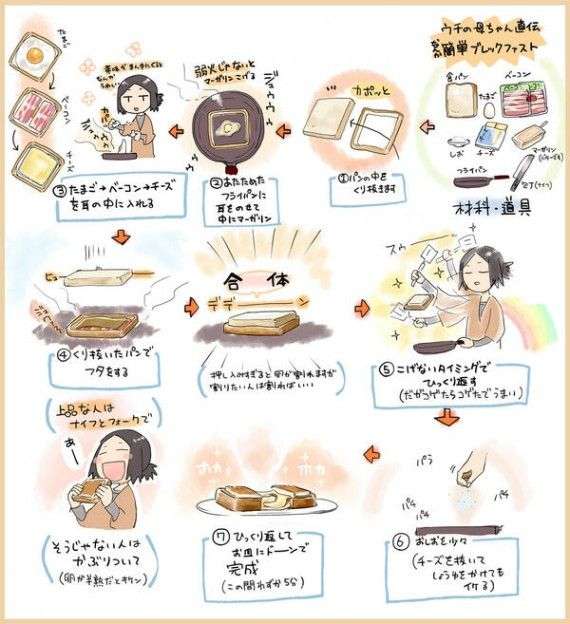 ウチの母ちゃん直伝
簡単ブレックファスト
食パン
ベーコン
たまご
しお
チーズ
マーガリン
フライパン
材料・道具
カポッと
①パンの中を
くり抜きます
弱火じゃないと
マーガリンこげる
ジュウウウ
②あたためた
フライパンに
耳をのせて
中にマーガリン
たまご
ベーコン
チーズ
③たまご→ベーコン→チーズ
を耳の中に入れる
④くり抜いたパンで
フタをする
合体
デデーーーン
押し込みすぎると卵が割れますが
割りたい人は割ればいい
スゥーー
⑤こげないタイミングで
ひっくり返す
(だがコゲたらコゲたでうまい)
パラ
パチ
パチ
パチ
⑥おしおを少々
(チーズを抜いて
しょうゆをかけても
イケる)
ホカ
ホカ
⑦ひっくり返して
お皿にドーンで
完成
(この間わずか5分)
上品な人は
ナイフとフォークで
あー
そうじゃない人は
かぶりついて
(卵が半熟だとキケン)